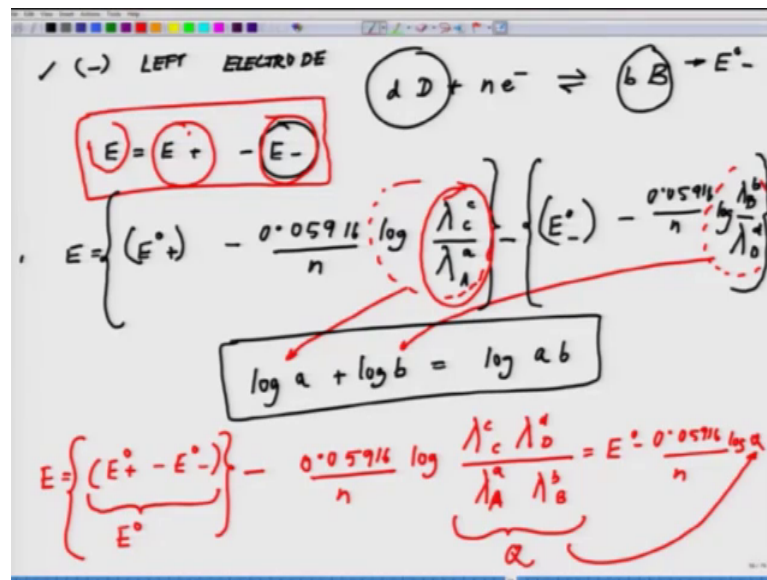 / (-) LEFT ELECTRODE
d D + n e⁻ ⇌ b B → E°-
E = E+ - E-
E = { (E°+) - 0.05916/n log λ_C^c/λ_A^a } - { (E°-) - 0.05916/n log λ_B^b/λ_D^d }
log a + log b = log ab
E = { (E°+ - E°-) } - 0.05916/n log λ_C^c λ_D^d / λ_A^a λ_B^b = E° - 0.05916/n log Q
E°
Q